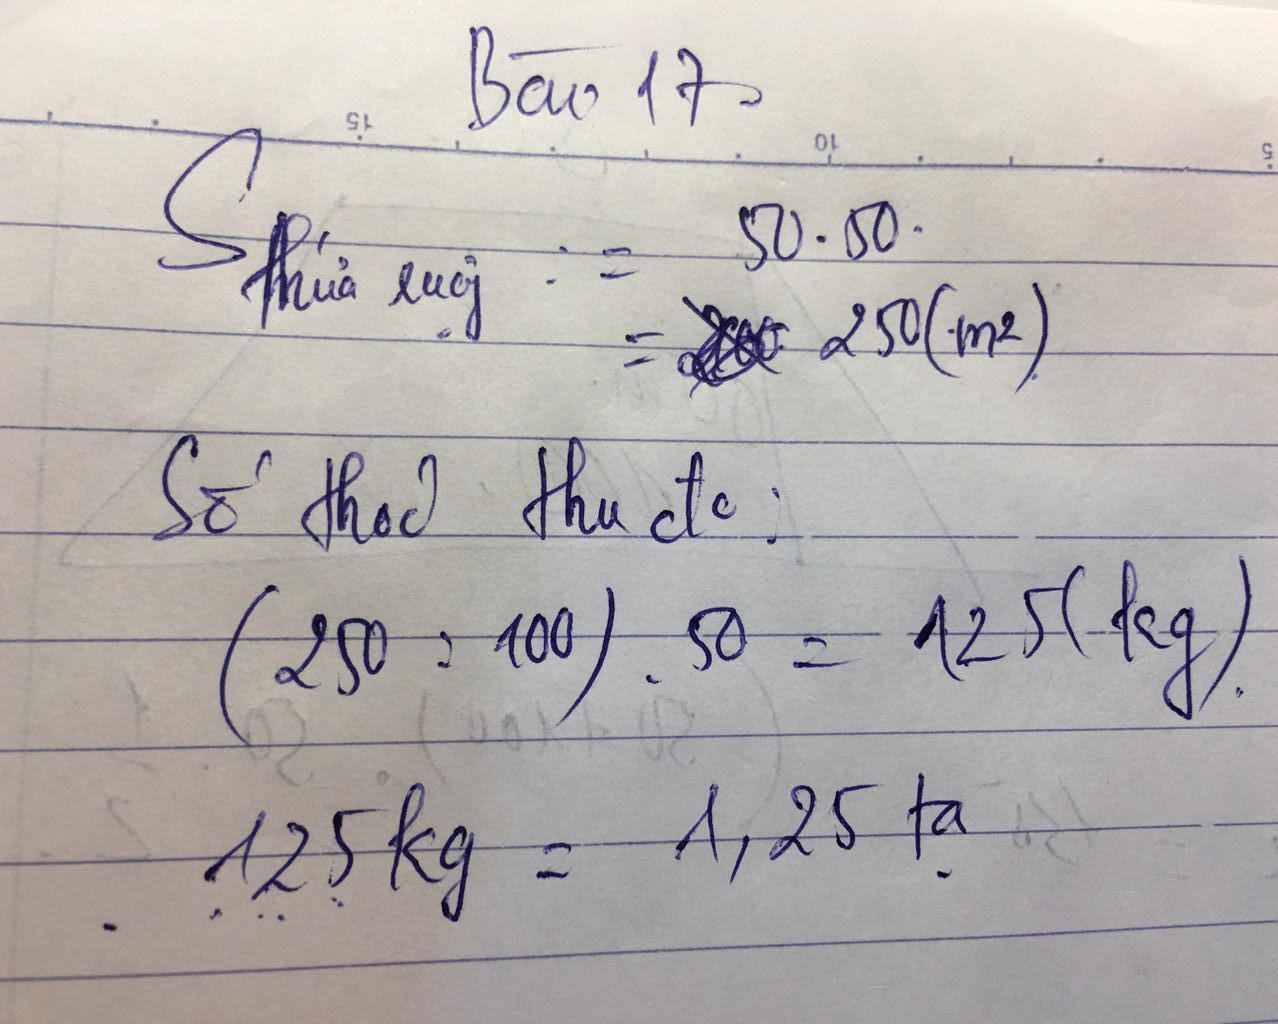 Bài 17
S thửa ruộng : = 50.50.
= 250 (m2)
Số thoc thu đc :
(250 : 100) . 50 = 125 (kg).
125kg = 1,25 tạ